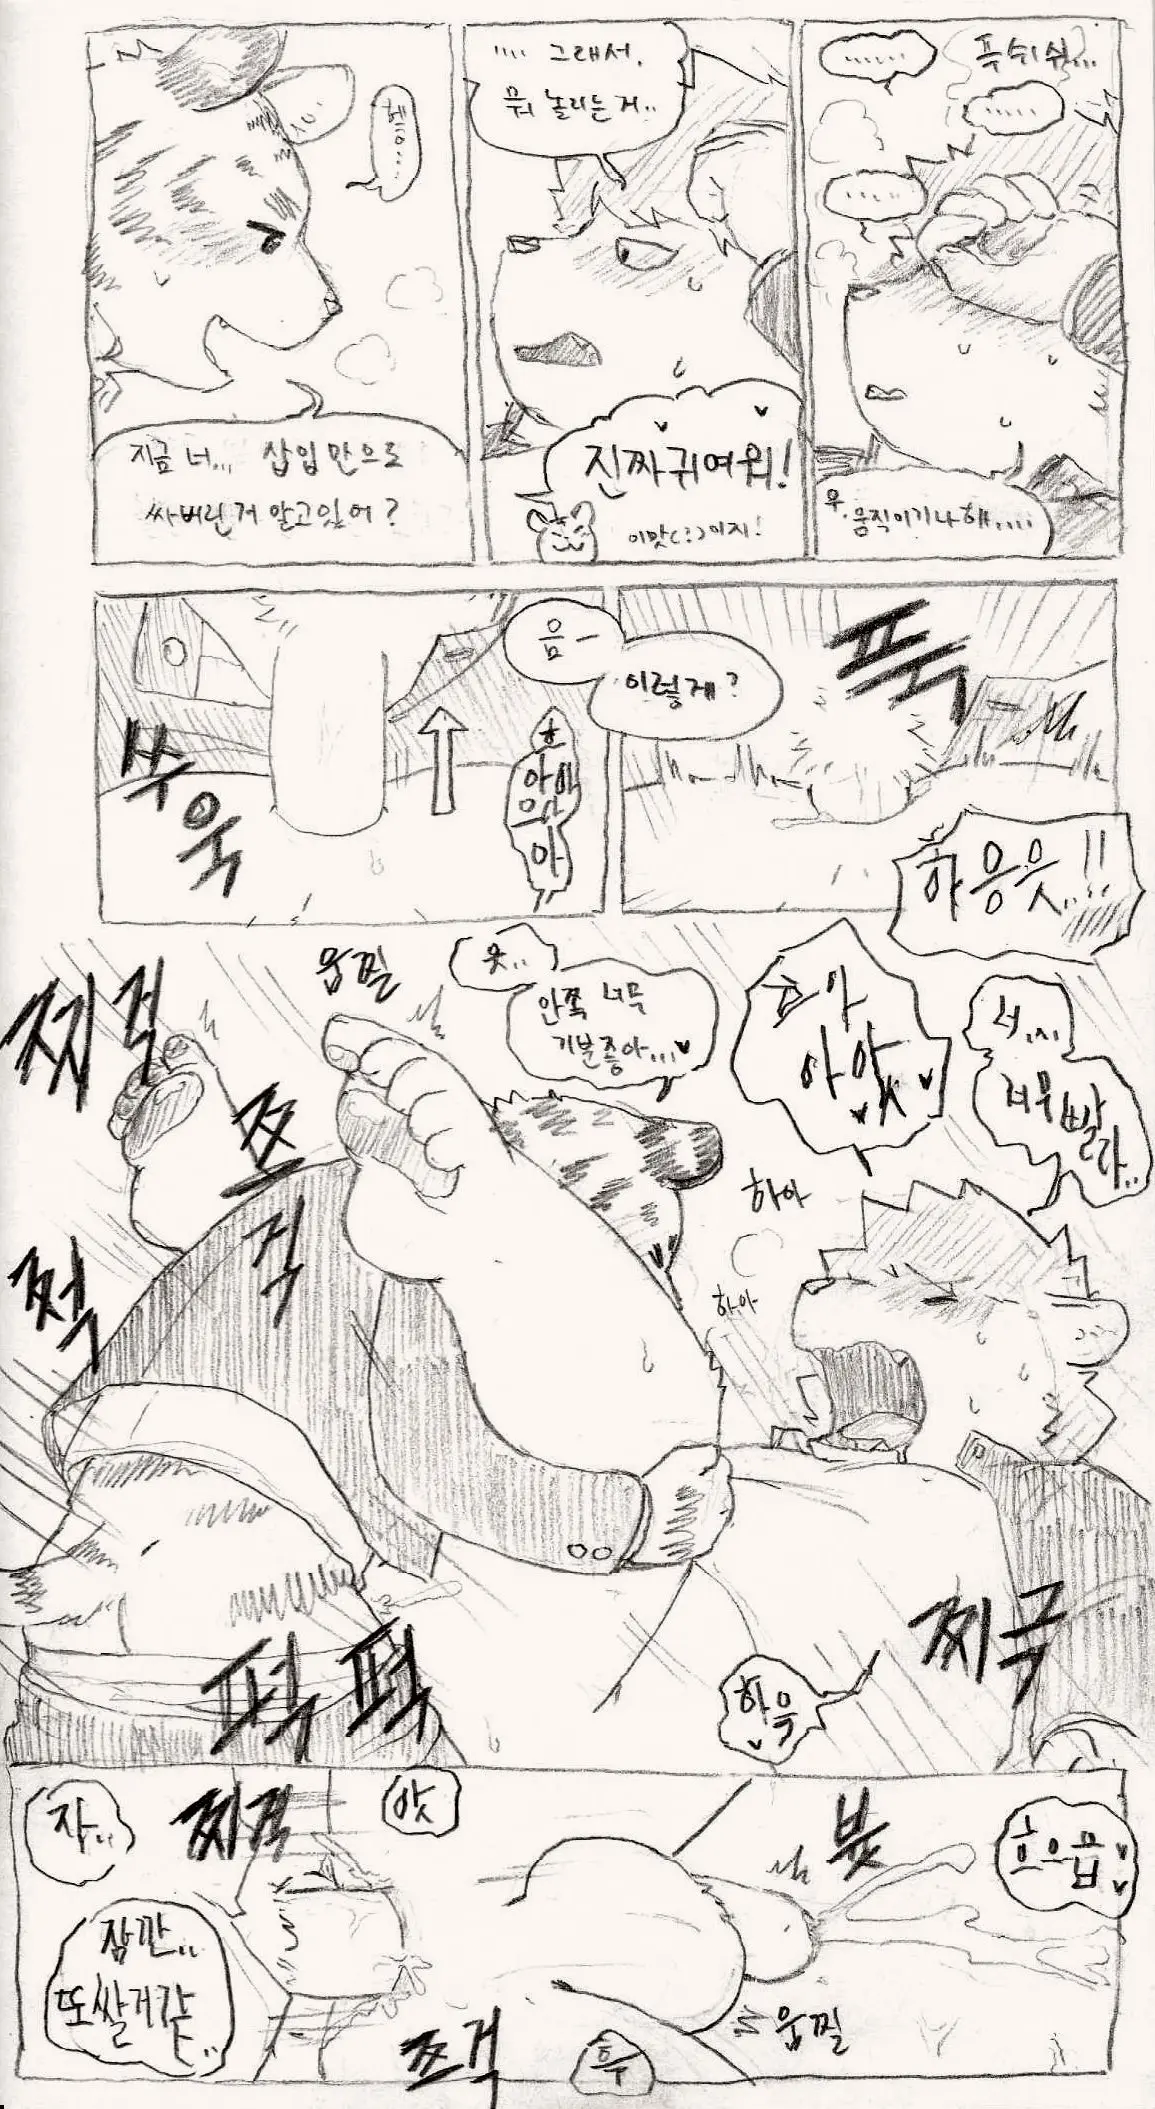 헤에...
지금 너... 삽입만으로
싸버린거 알고있어?
.... 그래서,
뭐 놀리는거..
진짜귀여워!
이맛(?)이지!
......
푸쉬쉬...
.....
.....
우, 움직이기나해....
쑤욱
음-
이렇게?
흐
아아
으아
아
푸욱
하응읏..!!
찌걱
움찔
읏..
안쪽 너무
기분좋아...
흐아
아앗
너...
너무빨라..
쯔걱
하아
하아
쩍
찌극
퍽퍽
하윽
자..
찌걱
앗
뷰
흐으읍
잠깐..
또쌀거같..
쯔걱
흑
움찔